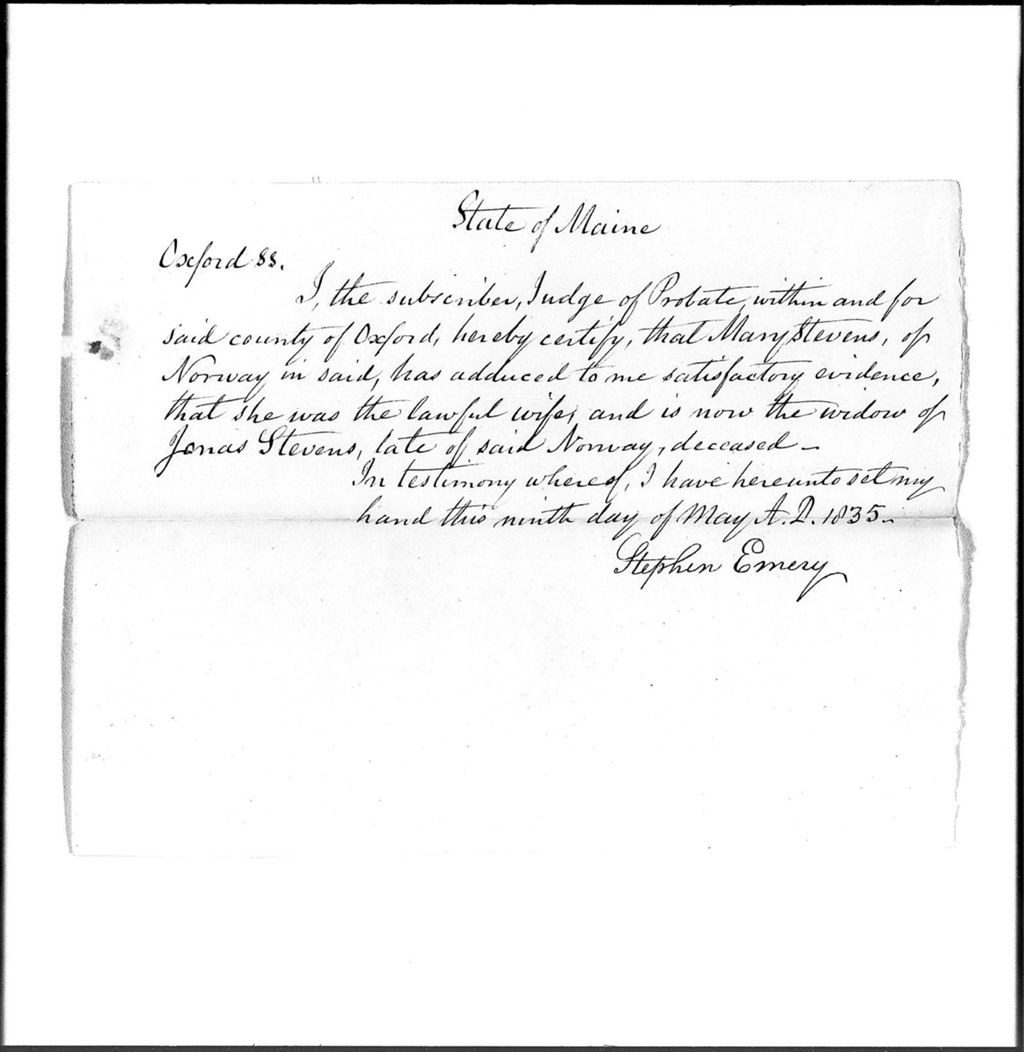 State of Maine
Oxford ss.
I, the subscriber, Judge of Probate, within and for
said county of Oxford, hereby certify, that Mary Stevens, of
Norway in said, has adduced to me satisfactory evidence,
that she was the lawful wife, and is now the widow of
Jonas Stevens, late of said Norway, deceased –
In testimony whereof, I have hereunto set my
hand this ninth day of May A. D. 1835.
Stephen Emery